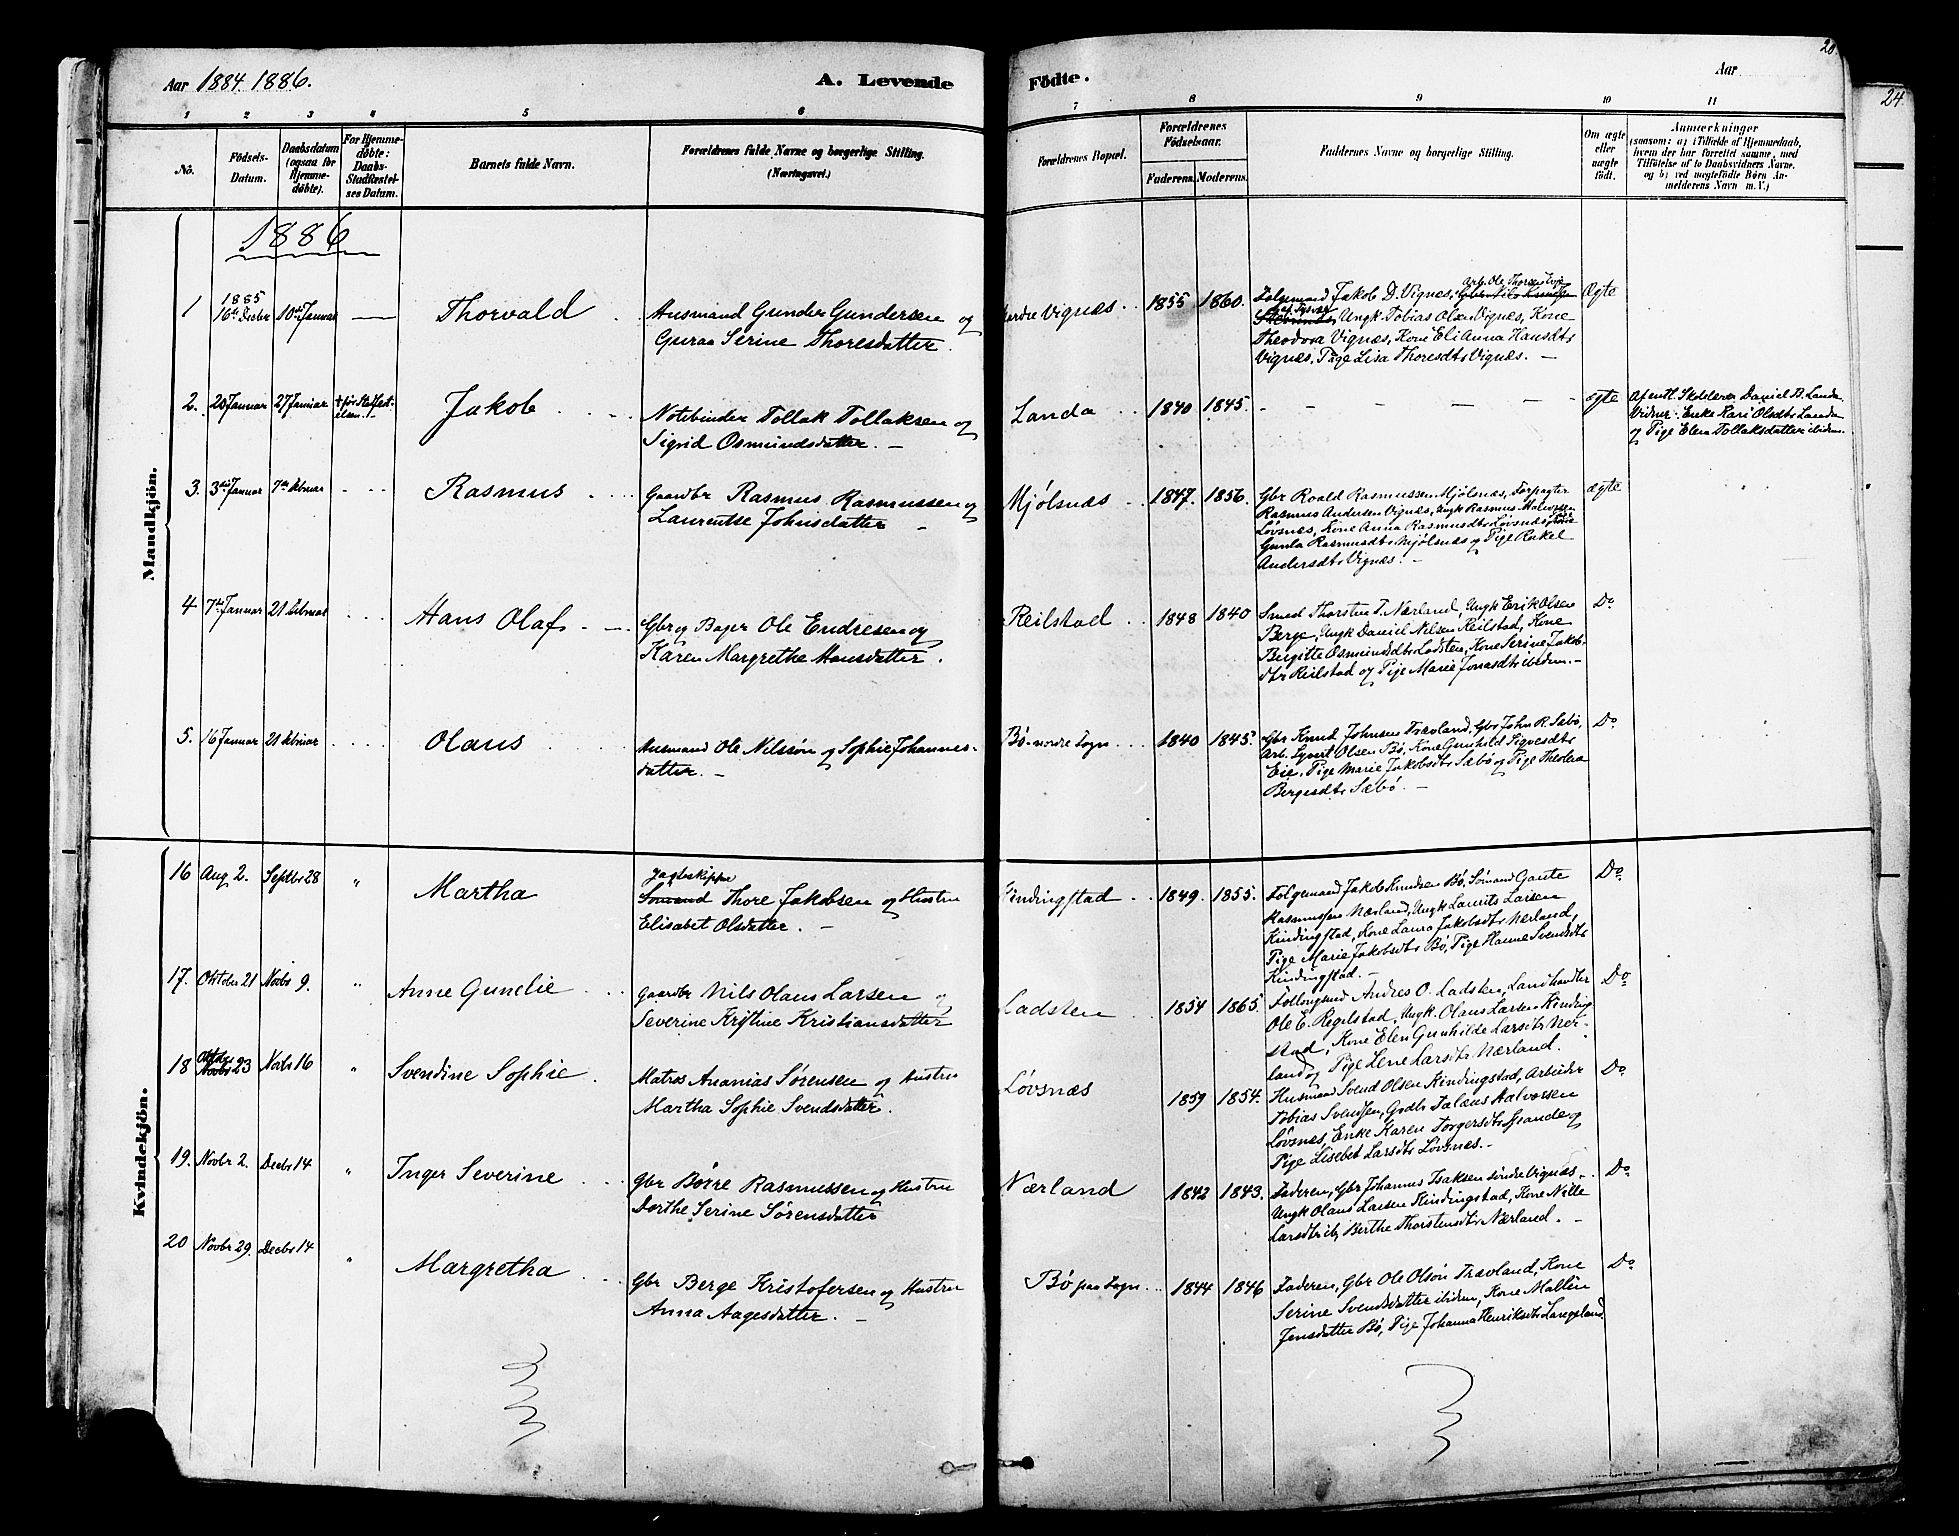 20.
24
Aar 1884. 1886.
A. Levende
Födte.
Aar
1 2 3 4 5 6 7 8 9 10 11
No.
Födsels-Datum.
Daabsdatum (ogsaa for Hjemme-döbte).
For Hjemme-döbte: Daabs-Stadfæstel-ses Datum.
Barnets fulde Navn.
Forældrenes fulde Navne og borgerlige Stilling. (Næringsvei.)
Forældrenes Bopæl.
Forældrenes Födselsaar.
Faderens. Moderens.
Faddernes Navne og borgerlige Stilling.
Om ægte eller uægte födt.
Anmærkninger
(saasom: a) i Tilfælde af Hjemmedaab, hvem der har forrettet samme, med Tilföielse af to Daabsvidners Navne, og b) ved uægtefödte Børn An-melderens Navn m. V.)
Mandkjön.
1886
1
1885
16de Decbr
10de Januar
Thorvald
Husmand Gunder Gundersen og
Guraa Serine Thoresdatter.
Nordre Vignæs
1855 1860.
Folgemand Jakob D. Vignæs, Arb. Ole Thorsen
Ungk Tobias Olsen Vignæs, Kone
Theodora Vignæs, Kone Eli Anna Hansdtr
Vignæs, Pige Lisa Thoresdtr Vignæs. —
Ægte
2. 20 Januar 27 Januar
† før Stadfæst-
elsen.
Jakob
Notebinder Tollak Tollaksen og
Sigrid Osmundsdatter. —
Landa
1840 1845.
— — — — —
ægte
Af entl. Skolelærer Daniel B. Landa
Vidner: Enke Kari Olsdtr Landa
og Pige Elen Tollaksdatter ibidem.
3. 3die Januar 7de Februar
Rasmus
Gaardbr Rasmus Rasmussen og
Laurentse Johnsdatter —
Mjølsnæs
1847. 1856.
Gbr Roald Rasmussen Mjølsnæs, Forpagter
Rasmus Andersen Vignæs, Ungk Rasmus Halvorsen
Løvsnes, Kone Anna Rasmusdtr Løvsnes, Kone
Gunla Rasmusdtr Mjølsnæs og Pige Rakel
Andersdtr Vignæs. —
ægte
4 7de Januar 21 Februar
Hans Olaf
Gbr og Bager Ole Endresen og
Karen Margrethe Hansdatter.
Reilstad
1848 1840
Smed Thorsten T. Nærland, Ungk Erik Olsen
Berge, Ungk Daniel Nilsen Reilstad, Kone
Birgitte Osmundsdtr Ladsten, Kone Serine Jakob-
dtr Reilstad og Pige Marie Jonasdtr ibidem. —
Do
5. 16 Januar 21 Februar
Olaus
Husmand Ole Nilssøn og Sophie Johannes-
datter. —
Bø-nordre Sogn
1840 1845.
Gbr Knud Johnsen Trævland, Gbr John R. Sæbø,
Arb. Syvert Olsen Bø, Kone Gunhild Sigvesdtr
Eie, Pige Marie Jakobsdtr Sæbø og Pige Theolea
Bergesdtr Sæbø. —
Do
Kvindekjön.
16 Aug 2. Septbr 28 "
Martha
Jagtskipper
Sømand Thore Jakobsen og Hustru
Elisabet Olsdatter. —
Kindingstad
1849. 1855.
Folgemand Jakob Knudsen Bø, Sømand Gaute
Rasmussen Nærland, Ungk Laurits Larsen
Kindingstad, Kone Laura Jakobsdtr Nærland,
Pige Marie Jakobsdtr Bø, Pige Hanne Svendsdtr
Kindingstad. —
Do
17. Oktober 21 Novbr 9. "
Anne Gunelie
Gaardbr Nils Olaus Larsen og
Severine Kristine Kristiansdatter
Ladsten
1854 1865.
Andres O. Ladsten, Landhandler
Ole E. Regelstad, Ungk. Olaus Larsen Kinding-
stad, Kone Elen Gunhilde Larsdtr Nær-
land og Pige Lene Larsdtr Nærland.
Do
18 Oktbr Novbr 23 Novbr 16 "
Svendine Sophie
Matros Ananias Sørensen og Hustru
Martha Sophie Svendsdatter.
Løvsnæs
1859 1854.
Husmand Svend Olsen Kindingstad, Arbeider
Tobias Svendsen, Gdbr Talaus Halvorsen
Løvsnes, Enke Karen Torgersdtr Sande og
Pige Lisebet Larsdtr Løvsnes. —
Do
19. Novbr 2. Decbr 14 "
Inger Severine
Gbr Børre Rasmussen og Hustru
Dorthe Serine Sørensdatter
Nærland
1842 1843.
Faderen, Gbr Johannes Isaksen søndre Vignæs,
Ungk Olaus Larsen Kindingstad, Kone Nille
Larsdtr ib, Berthe Thorstensdtr Nærland. —
Do
20 Novbr 29. Decbr 14 "
Margretha
Gbr Berge Kristofersen og Hustru
Anna Aagesdatter. —
Bø paa Sogn
1844 1846
Faderen, Gbr Ole Olsøn Trævland, Kone
Serine Svendsdatter ibidem, Kone Mallen
Jensdatter Bø, Pige Johanna Henriksdtr Langeland.
Do